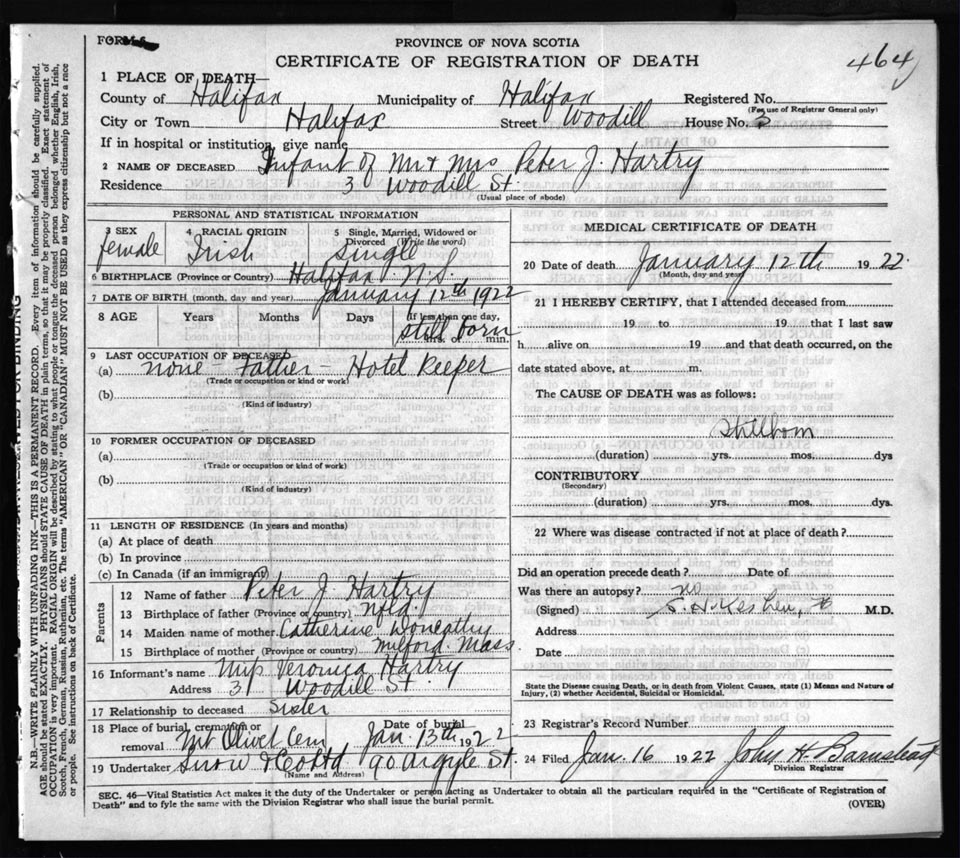 FORM 5
PROVINCE OF NOVA SCOTIA
CERTIFICATE OF REGISTRATION OF DEATH
464
1 PLACE OF DEATH—
County of Halifax Municipality of Halifax Registered No.
(For use of Registrar General only)
City or Town Halifax Street Woodill House No. 3
If in hospital or institution, give name
2 NAME OF DECEASED Infant of Mr & Mrs Peter J. Hartry
Residence 3 Woodill St.
(Usual place of abode)
PERSONAL AND STATISTICAL INFORMATION
3 SEX 4 RACIAL ORIGIN 5 Single, Married, Widowed or Divorced (Write the word)
female Irish Single
6 BIRTHPLACE (Province or Country) Halifax N.S.
7 DATE OF BIRTH (month, day and year) January 12th 1922
8 AGE Years Months Days If less than one day,
still born
hrs. or min.
9 LAST OCCUPATION OF DECEASED
(a) none - Father - Hotel Keeper
(Trade or occupation or kind of work)
(b)
(Kind of industry)
10 FORMER OCCUPATION OF DECEASED
(a)
(Trade or occupation or kind of work)
(b)
(Kind of industry)
11 LENGTH OF RESIDENCE (In years and months)
(a) At place of death
(b) In province
(c) In Canada (if an immigrant)
Parents
12 Name of father Peter J. Hartry
13 Birthplace of father (Province or country) Nfld.
14 Maiden name of mother Catherine
15 Birthplace of mother (Province or country) Milford Mass
16 Informant's name Miss Veronica Hartry
Address 3 Woodill St
17 Relationship to deceased Sister
18 Place of burial, cremation or removal Mt Olivet Cem Date of burial Jan. 13th 1922
19 Undertaker Snow & Co Ltd 90 Argyle St.
(Name and Address)
MEDICAL CERTIFICATE OF DEATH
20 Date of death January 12th 1922
(Month, day and year)
21 I HEREBY CERTIFY, that I attended deceased from
19 to 19 that I last saw
h alive on 19 and that death occurred, on the
date stated above, at m.
The CAUSE OF DEATH was as follows:
Stillborn
(duration) yrs. mos. dys
CONTRIBUTORY
(Secondary)
(duration) yrs. mos. dys.
22 Where was disease contracted if not at place of death?
Did an operation precede death? Date of
Was there an autopsy? no
(Signed) M.D.
Address
Date
State the Disease causing Death, or in death from Violent Causes, state (1) Means and Nature of
Injury, (2) whether Accidental, Suicidal or Homicidal.
23 Registrar's Record Number
24 Filed Jan. 16 1922 John H Barnstead
Division Registrar
SEC. 46—Vital Statistics Act makes it the duty of the Undertaker or person acting as Undertaker to obtain all the particulars required in the "Certificate of Registration of
Death" and to fyle the same with the Division Registrar who shall issue the burial permit.
(OVER)
N.B.—WRITE PLAINLY WITH UNFADING INK—THIS IS A PERMANENT RECORD. Every item of information should be carefully supplied.
AGE should be stated EXACTLY. PHYSICIANS should STATE CAUSE OF DEATH in plain terms, so that it may be properly classified. Exact statement of
OCCUPATION is very important. RACIAL ORIGIN will be described by stating to what people or tongue the deceased person belonged whether English, Irish,
Scotch, French, German, Russian, Ruthenian, etc. The terms "AMERICAN" OR "CANADIAN" MUST NOT BE USED as they express citizenship but not a race
or people. See instructions on back of Certificate.